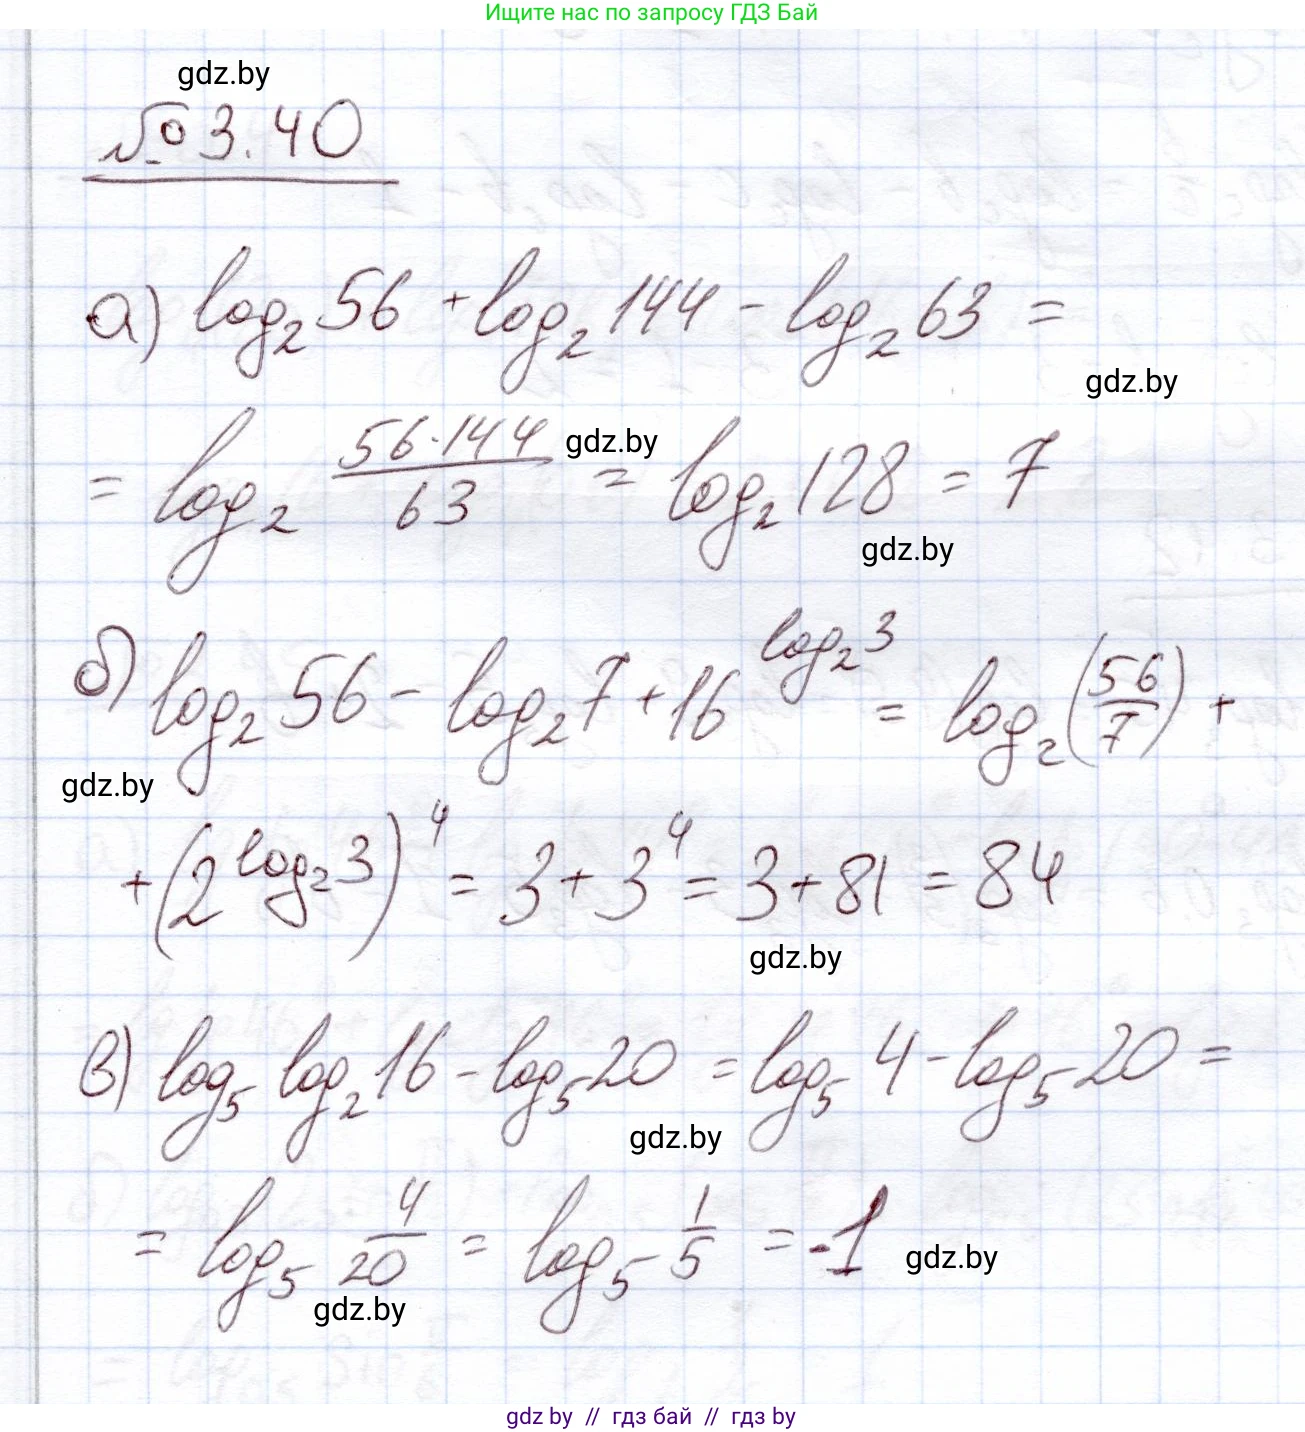 Ищите нас по запросу ГДЗ Бай
gdz.by
№ 3.40
а) log₂ 56 + log₂ 144 - log₂ 63 =
gdz.by
= log₂ (56·144)/63 = log₂ 128 = 7
gdz.by
gdz.by
б) log₂ 56 - log₂ 7 + 16^(log₂ 3) = log₂ (56/7) +
gdz.by
+ (2^(log₂ 3))⁴ = 3 + 3⁴ = 3 + 81 = 84
gdz.by
в) log₅ log₂ 16 - log₅ 20 = log₅ 4 - log₅ 20 =
gdz.by
= log₅ 4/20 = log₅ 1/5 = -1
gdz.by
gdz.by
gdz.by // гдз бай // гдз by